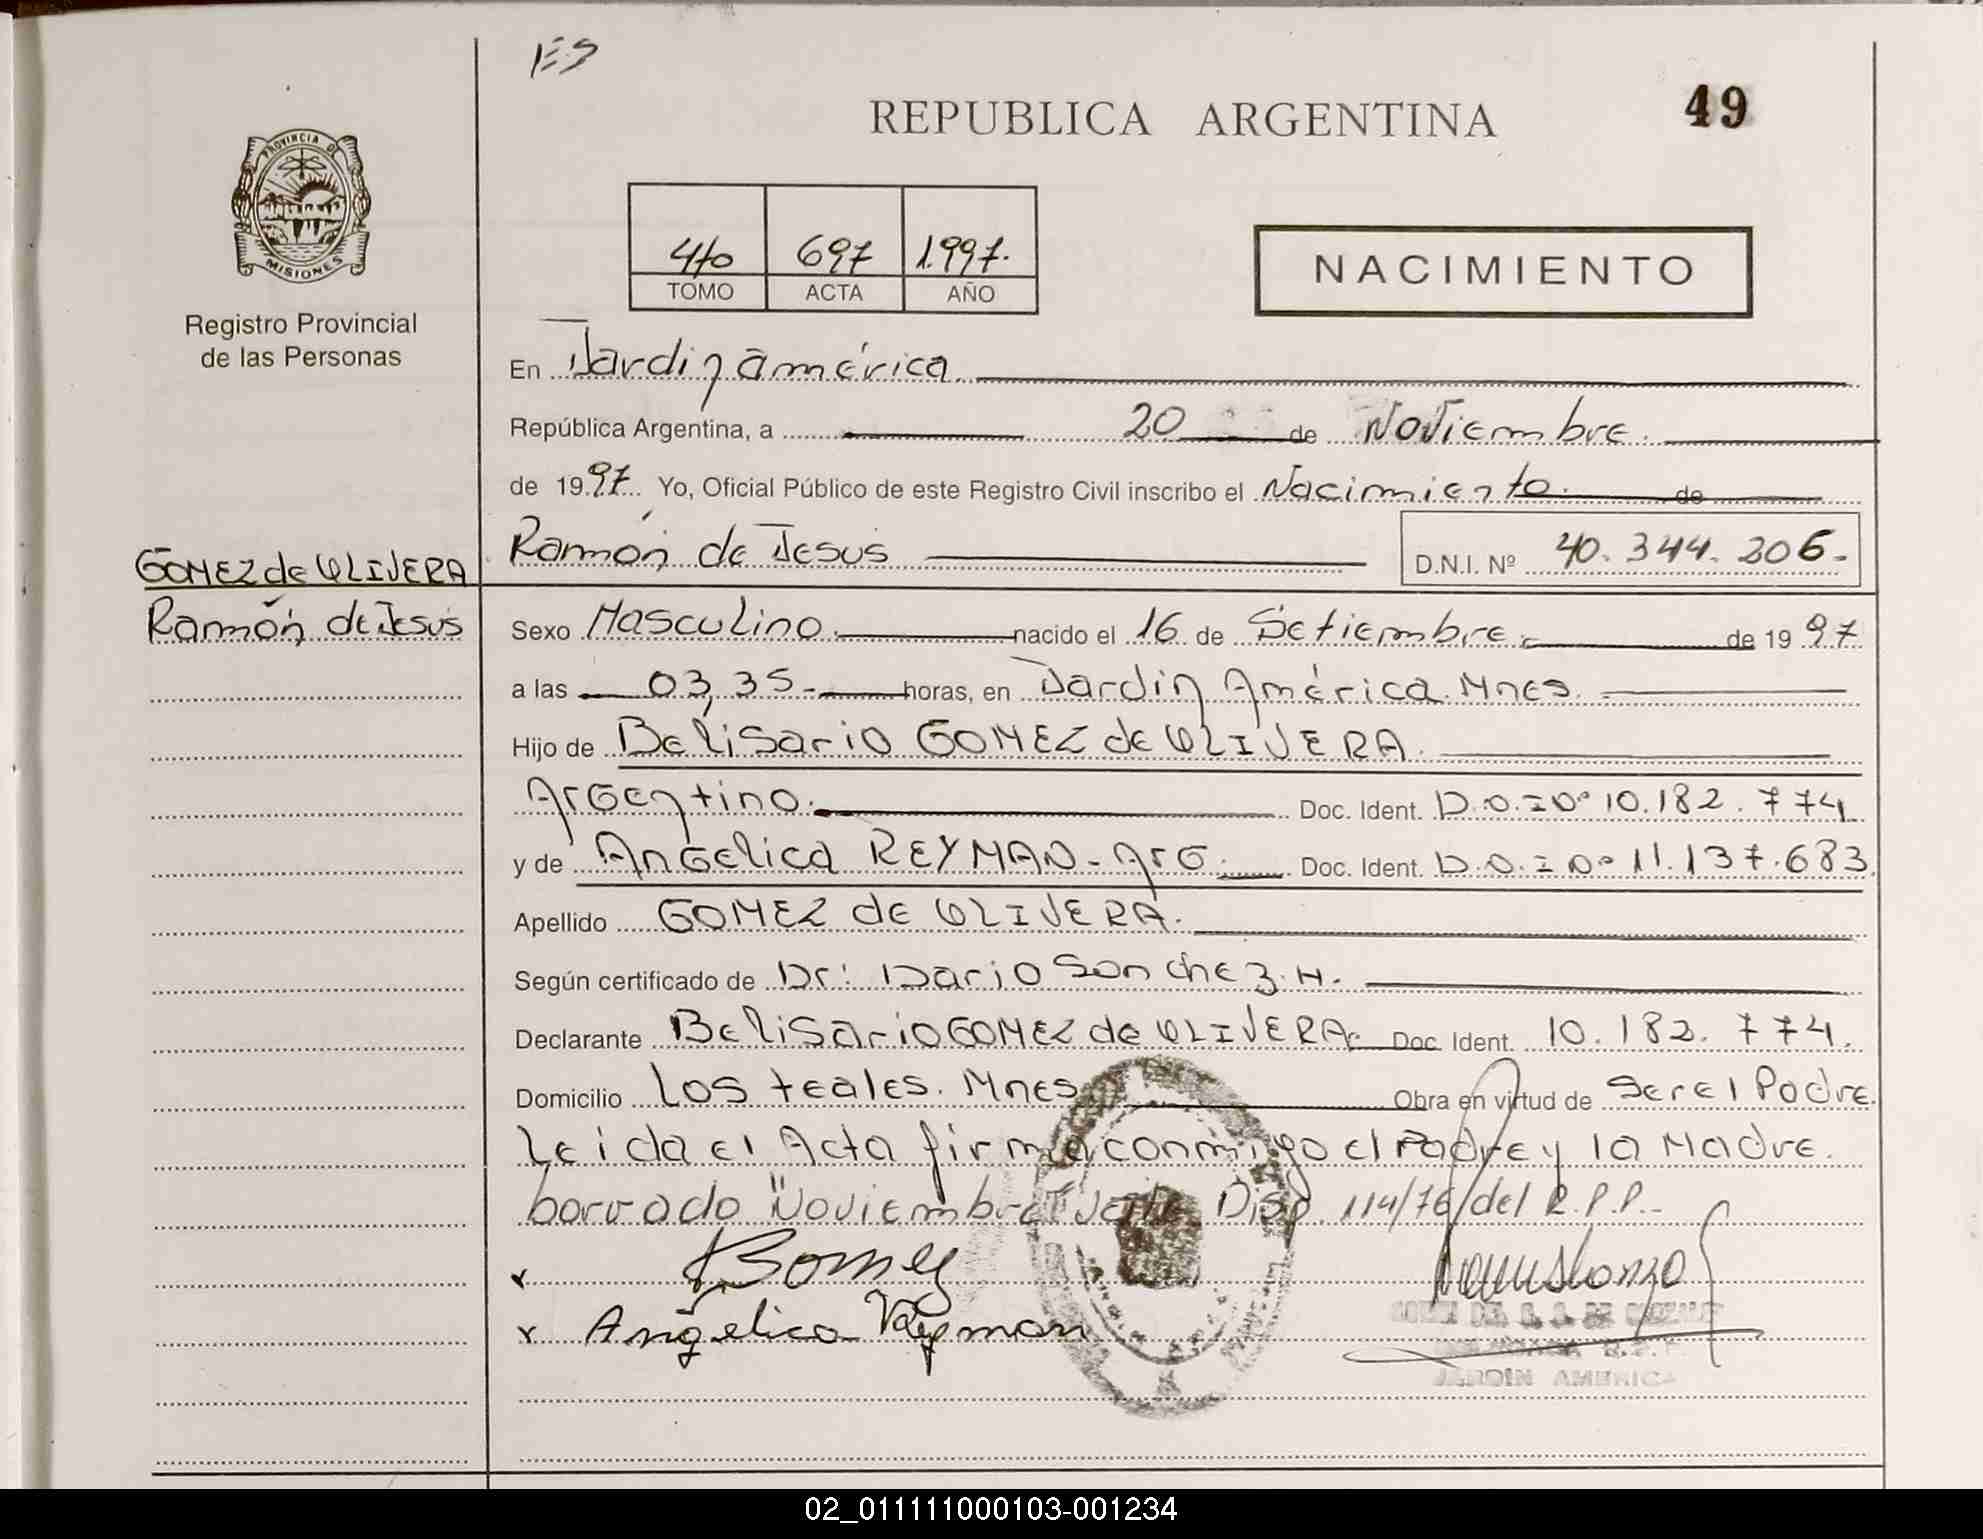 ES
REPUBLICA ARGENTINA
49
PROVINCIA DE
MISIONES
Registro Provincial
de las Personas
4to 697 1.997.
TOMO ACTA AÑO
NACIMIENTO
En Jardin américa
República Argentina, a 20 de Noviembre.
de 1997. Yo, Oficial Público de este Registro Civil inscribo el Nacimiento. de
Ramón de Jesus
D.N.I. Nº 40.344.206.-
GOMEZ de OLIVERA
Ramón de Jesús
Sexo Masculino. nacido el 16 de Setiembre. de 1997
a las 03,35- horas, en Jardin América. Mnes.
Hijo de Belisario GOMEZ de OLIVERA.
Argentino. Doc. Ident. D.N.I Nº 10.182.774
y de Angelica REYMAN - Arg. Doc. Ident. D.N.I Nº 11.137.683.
Apellido GOMEZ de OLIVERA.
Según certificado de Dr: Dario Sanchez. H.
Declarante Belisario GOMEZ de OLIVERA. Doc. Ident. 10.182.774.
Domicilio Los teales. Mnes Obra en virtud de Ser el Padre.
Leida el Acta firma conmigo el Padre y la Madre.
borrado "Noviembre" Vale Disp. 114/76 del R.P.P.-
x Gomez
x Angélica Reyman
JARDIN AMERICA
02_011111000103-001234